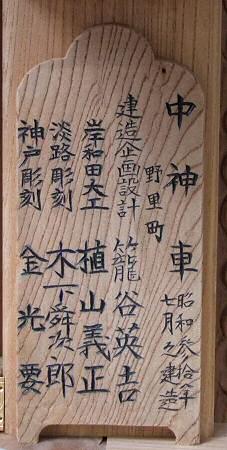 中神車
野里町
昭和参拾年
七月之建造
建造企画設計 籠谷英吉
岸和田大工 植山義正
淡路彫刻 木下舜次郎
神戸彫刻 金光要